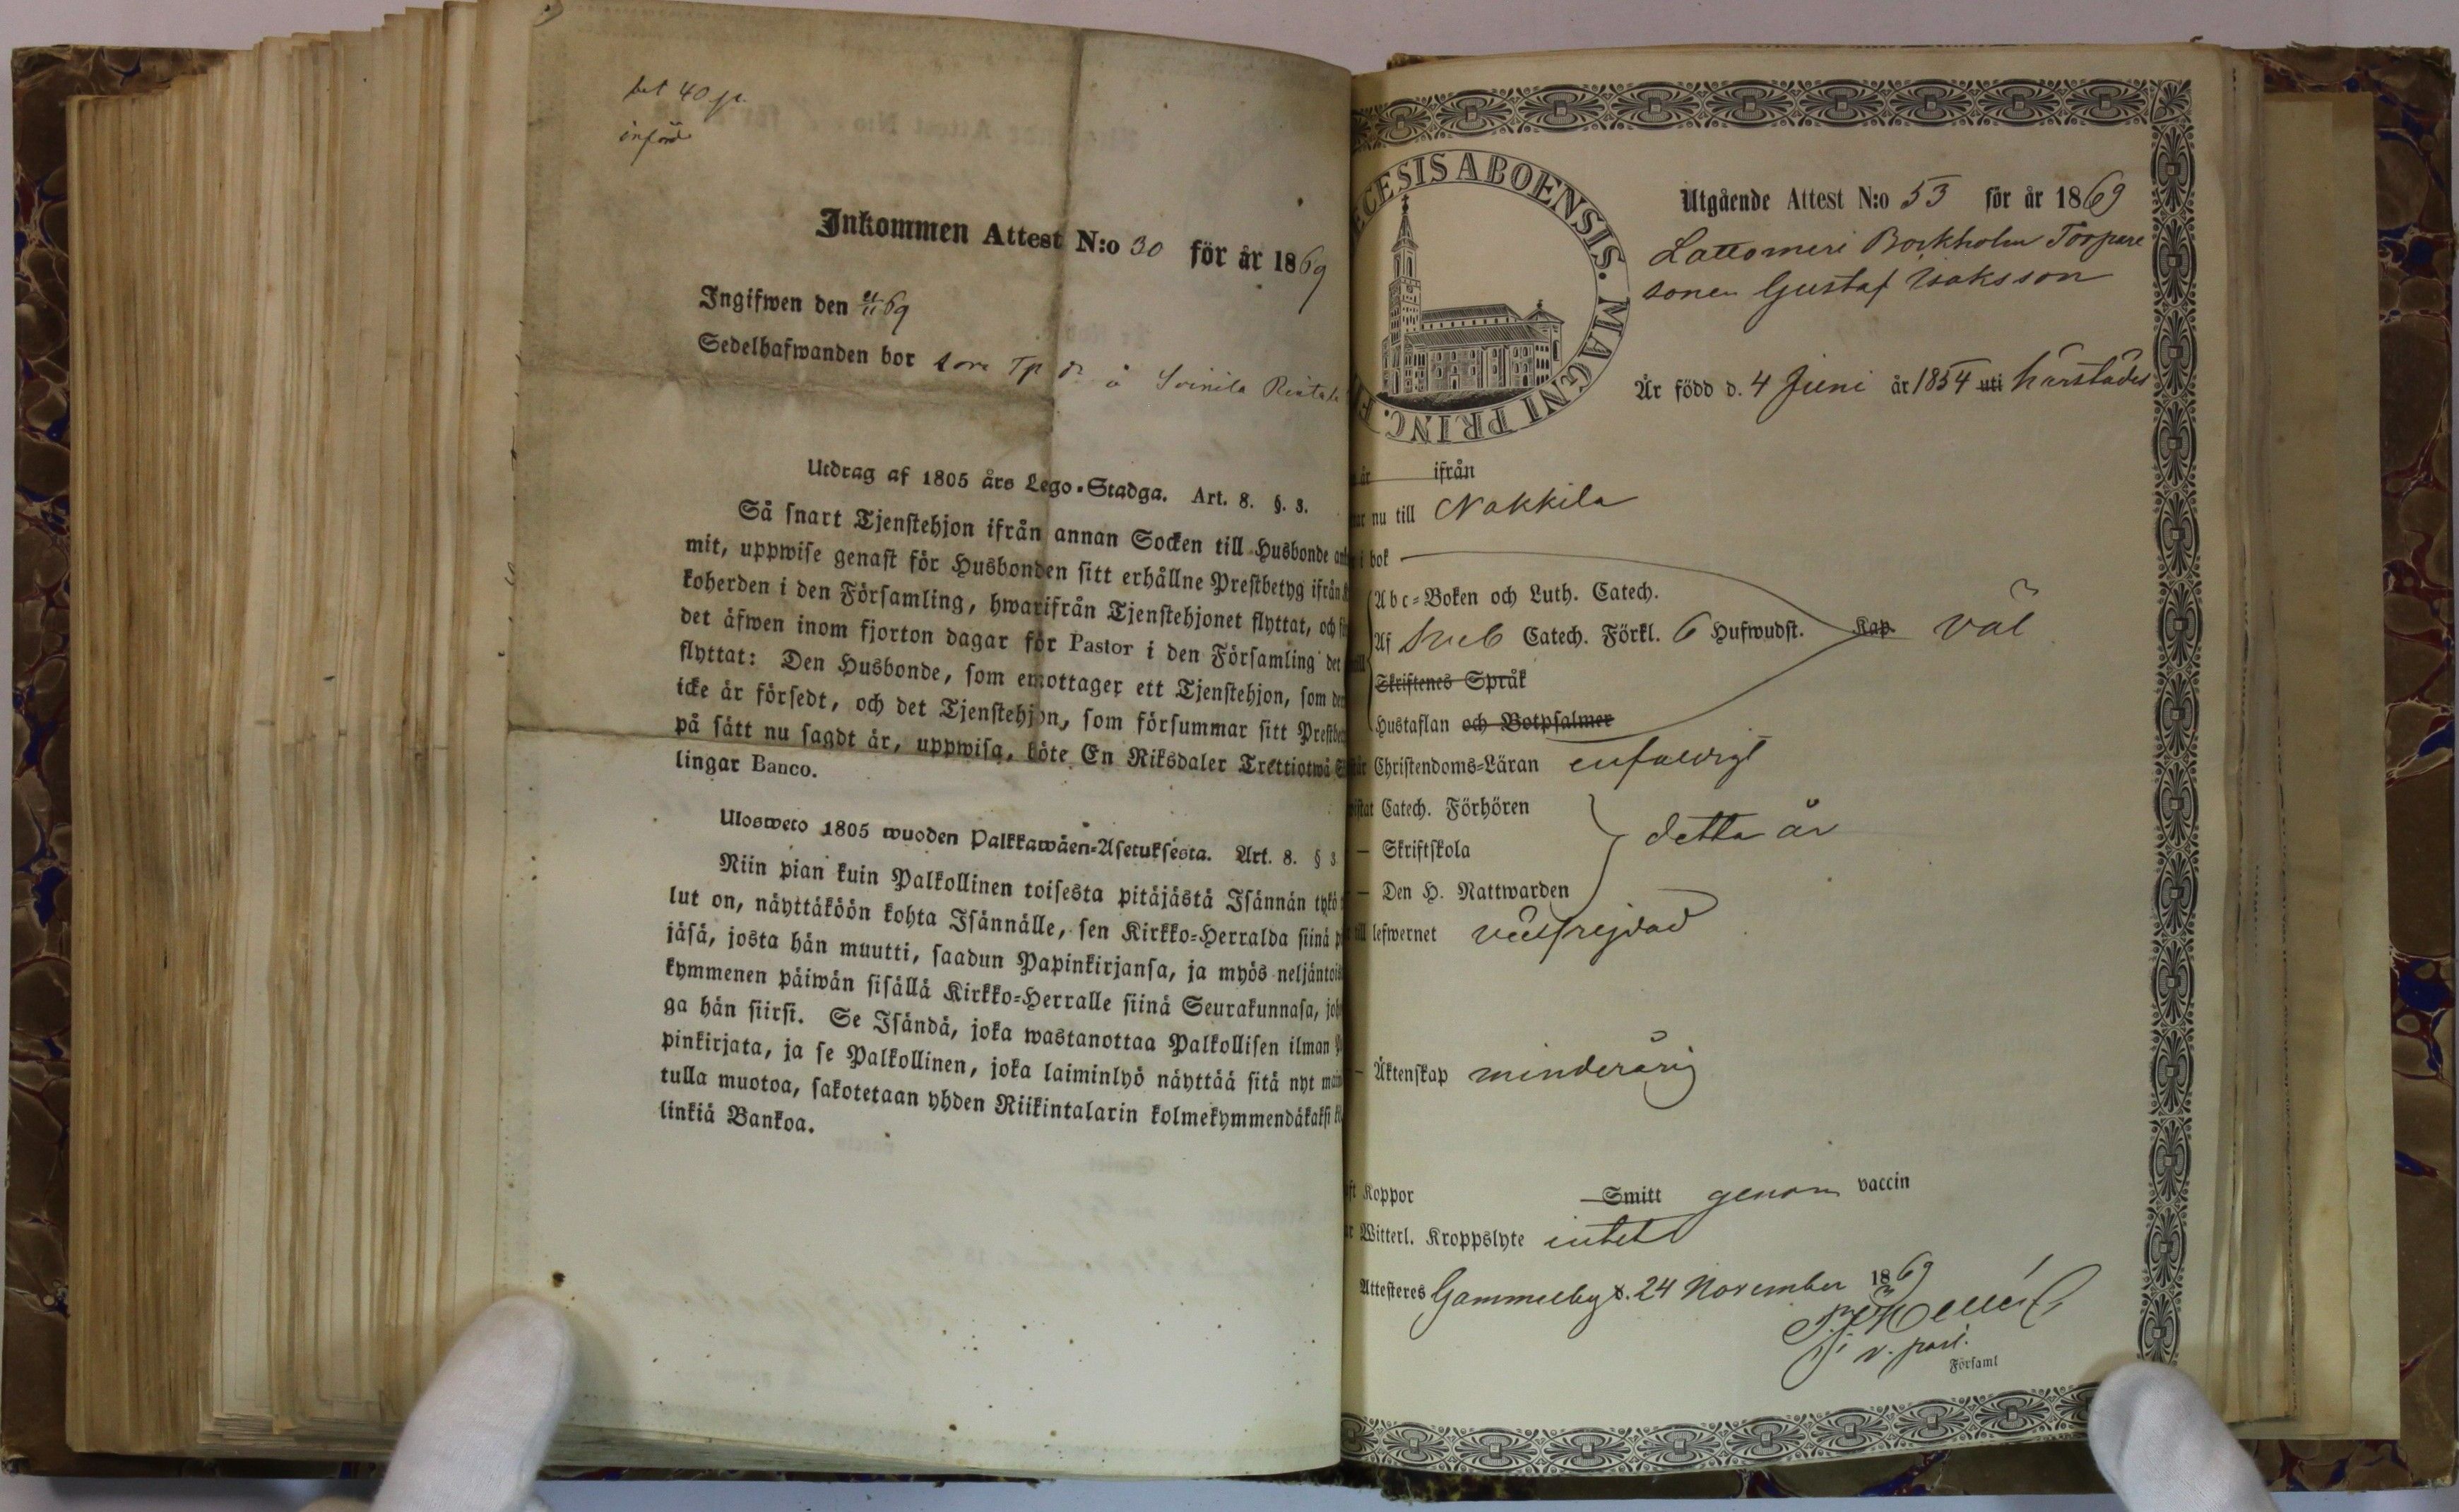 bet 40 p.
införd
Inkommen Attest N:o 30 för år 1869
Ingifwen den /11 69
Sedelhafwanden bor som Tp dr å Soinila
Utdrag af 1805 års Lego-Stadga. Art. 8. §. 3.
Så snart Tjenstehjon ifrån annan Socken till Husbonde
mit, uppwise genast för Husbonden sitt erhållne Prestbetyg ifrån
koherden i den Församling, hwarifrån Tjenstehjonet flyttat, och
det äfwen inom fjorton dagar för Pastor i den Församling det
flyttat: Den Husbonde, som emottager ett Tjenstehjon, som
icke är försedt, och det Tjenstehjon, som försummar sitt
på sätt nu sagdt är, uppwisa, böte En Riksdaler Trettiotwå
lingar Banco.
Ulosweto 1805 wuoden Palkkawäen-Asetuksesta. Art. 8. § 3
Niin pian kuin Palkollinen toisesta pitäjästä Isännän tykö
lut on, näyttäköön kohta Isännälle, sen Kirkko-Herralda siinä
jäsä, josta hän muutti, saadun Papinkirjansa, ja myös neljäntois
kymmenen päiwän sisällä Kirkko-Herralle siinä Seurakunnasa,
ga hän siirsi. Se Isändä, joka wastanottaa Palkollisen ilman
pinkirjata, ja se Palkollinen, joka laiminlyö näyttää sitä nyt
tulla muotoa, sakotetaan yhden Riikintalarin kolmekymmendäkaksi
linkiä Bankoa.
ECESIS ABOENSIS. MAGNI PRINC.
Utgående Attest N:o 53 för år 1869
Lattomeri Borkholm Torpare
sonen Gustaf Isaksson
Är född d. 4 Juni år 1854 uti härstädes
år ifrån
nu till Nakkila
i bok
Abc-Boken och Luth. Catech.
Af Sveb Catech. Förkl. 6 Hufwudst. Kap. väl
Skriftenes Språk
Hustaflan och Botpsalmer
Christendoms-Läran enfaldigt
Catech. Förhören
— Skriftskola detta år
— Den H. Nattwarden
till lefwernet välfrejdad
— Äktenskap minderårig
Koppor Smitt genom vaccin
Witterl. Kroppslyte intet
Attesteres Gammelby d. 24 November 1869
v. past.
Församl